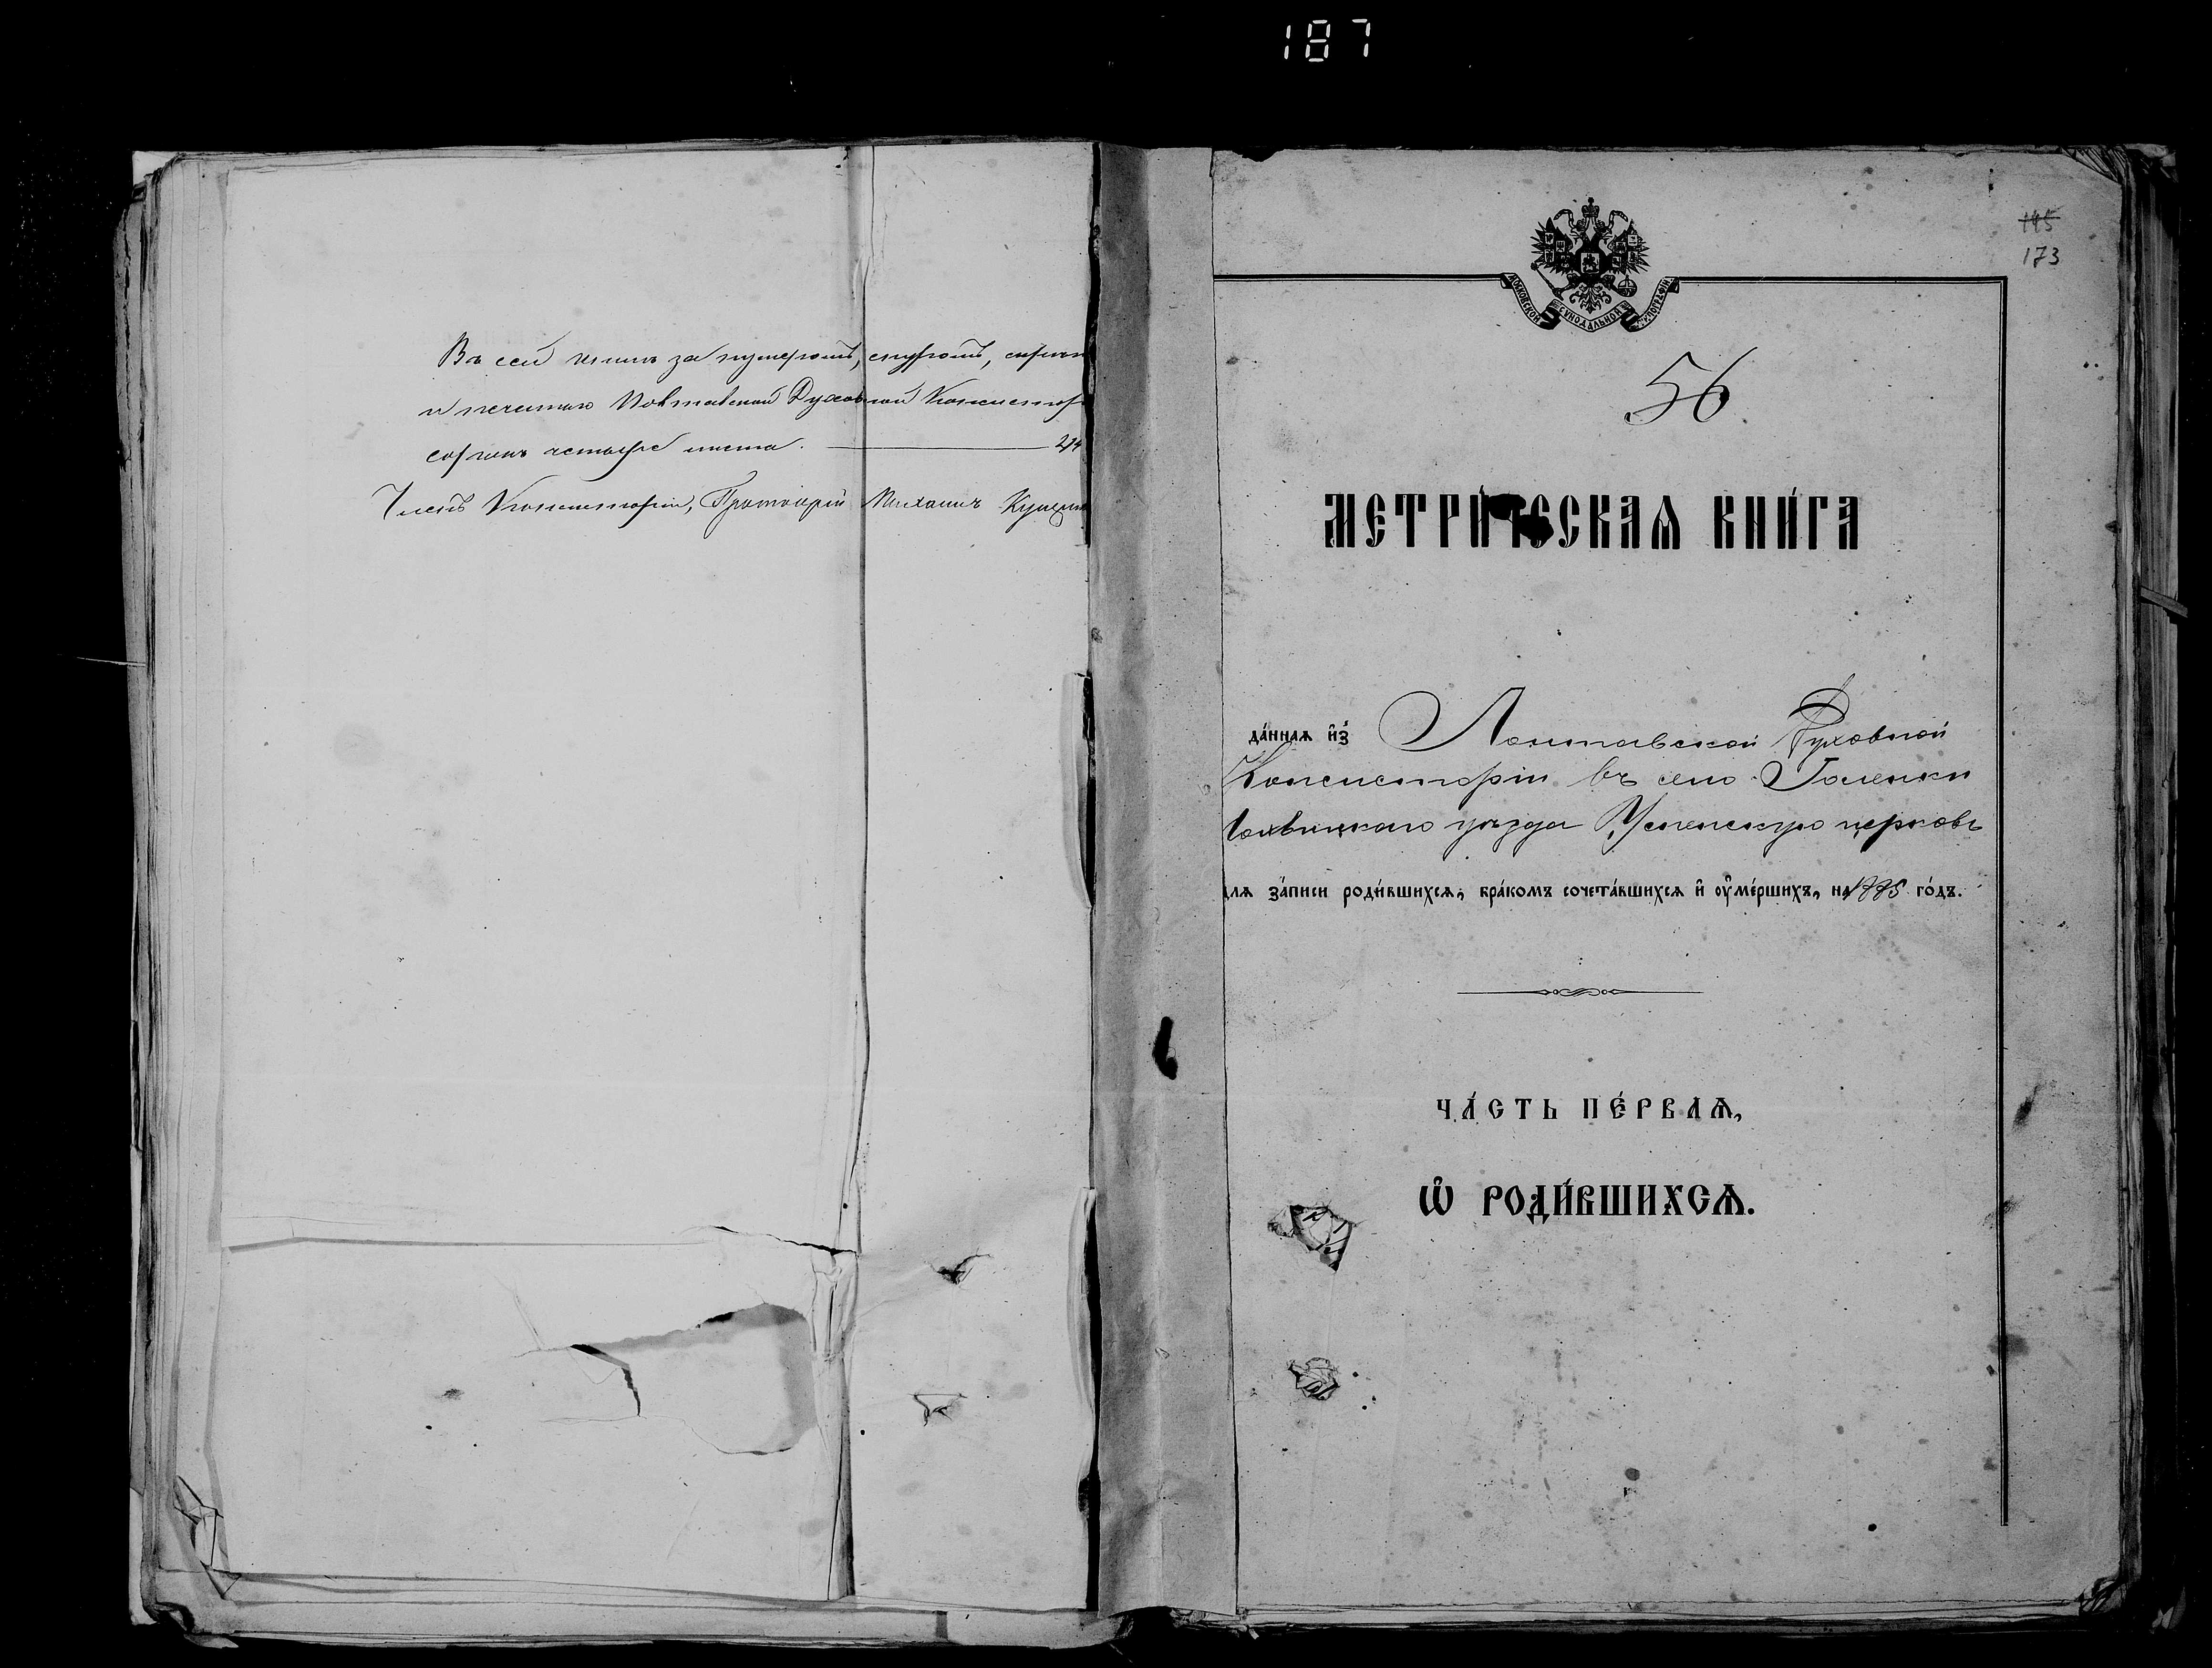 187
Въ сей книгѣ за нумеромъ, шнуромъ, скрѣпо
и печатью Полтавской Духовной Консистор
сорокъ четыре листа. 44
Членъ Консисторіи, Протоіерей Михаилъ
145
173
МОСКОВСКОЙ СѴНОДАЛЬНОЙ ТИПОГРАФІИ
56
МЕТРИ́ЧЕСКАѦ КНИ́ГА
да́ннаѧ и҆з̾ Полтавской Духовной
Консисторіи въ село Голенки
Лохвицкаго уѣзда Успенскую церковь
для за́писи роди́вшихсѧ, бра́комъ сочета́вшихсѧ и҆ ᲂу҆ме́ршихъ, на 1885 го́дъ.
ЧА́СТЬ ПЕ́РВАѦ,
Ѡ҆ РОДИ́ВШИХСѦ.